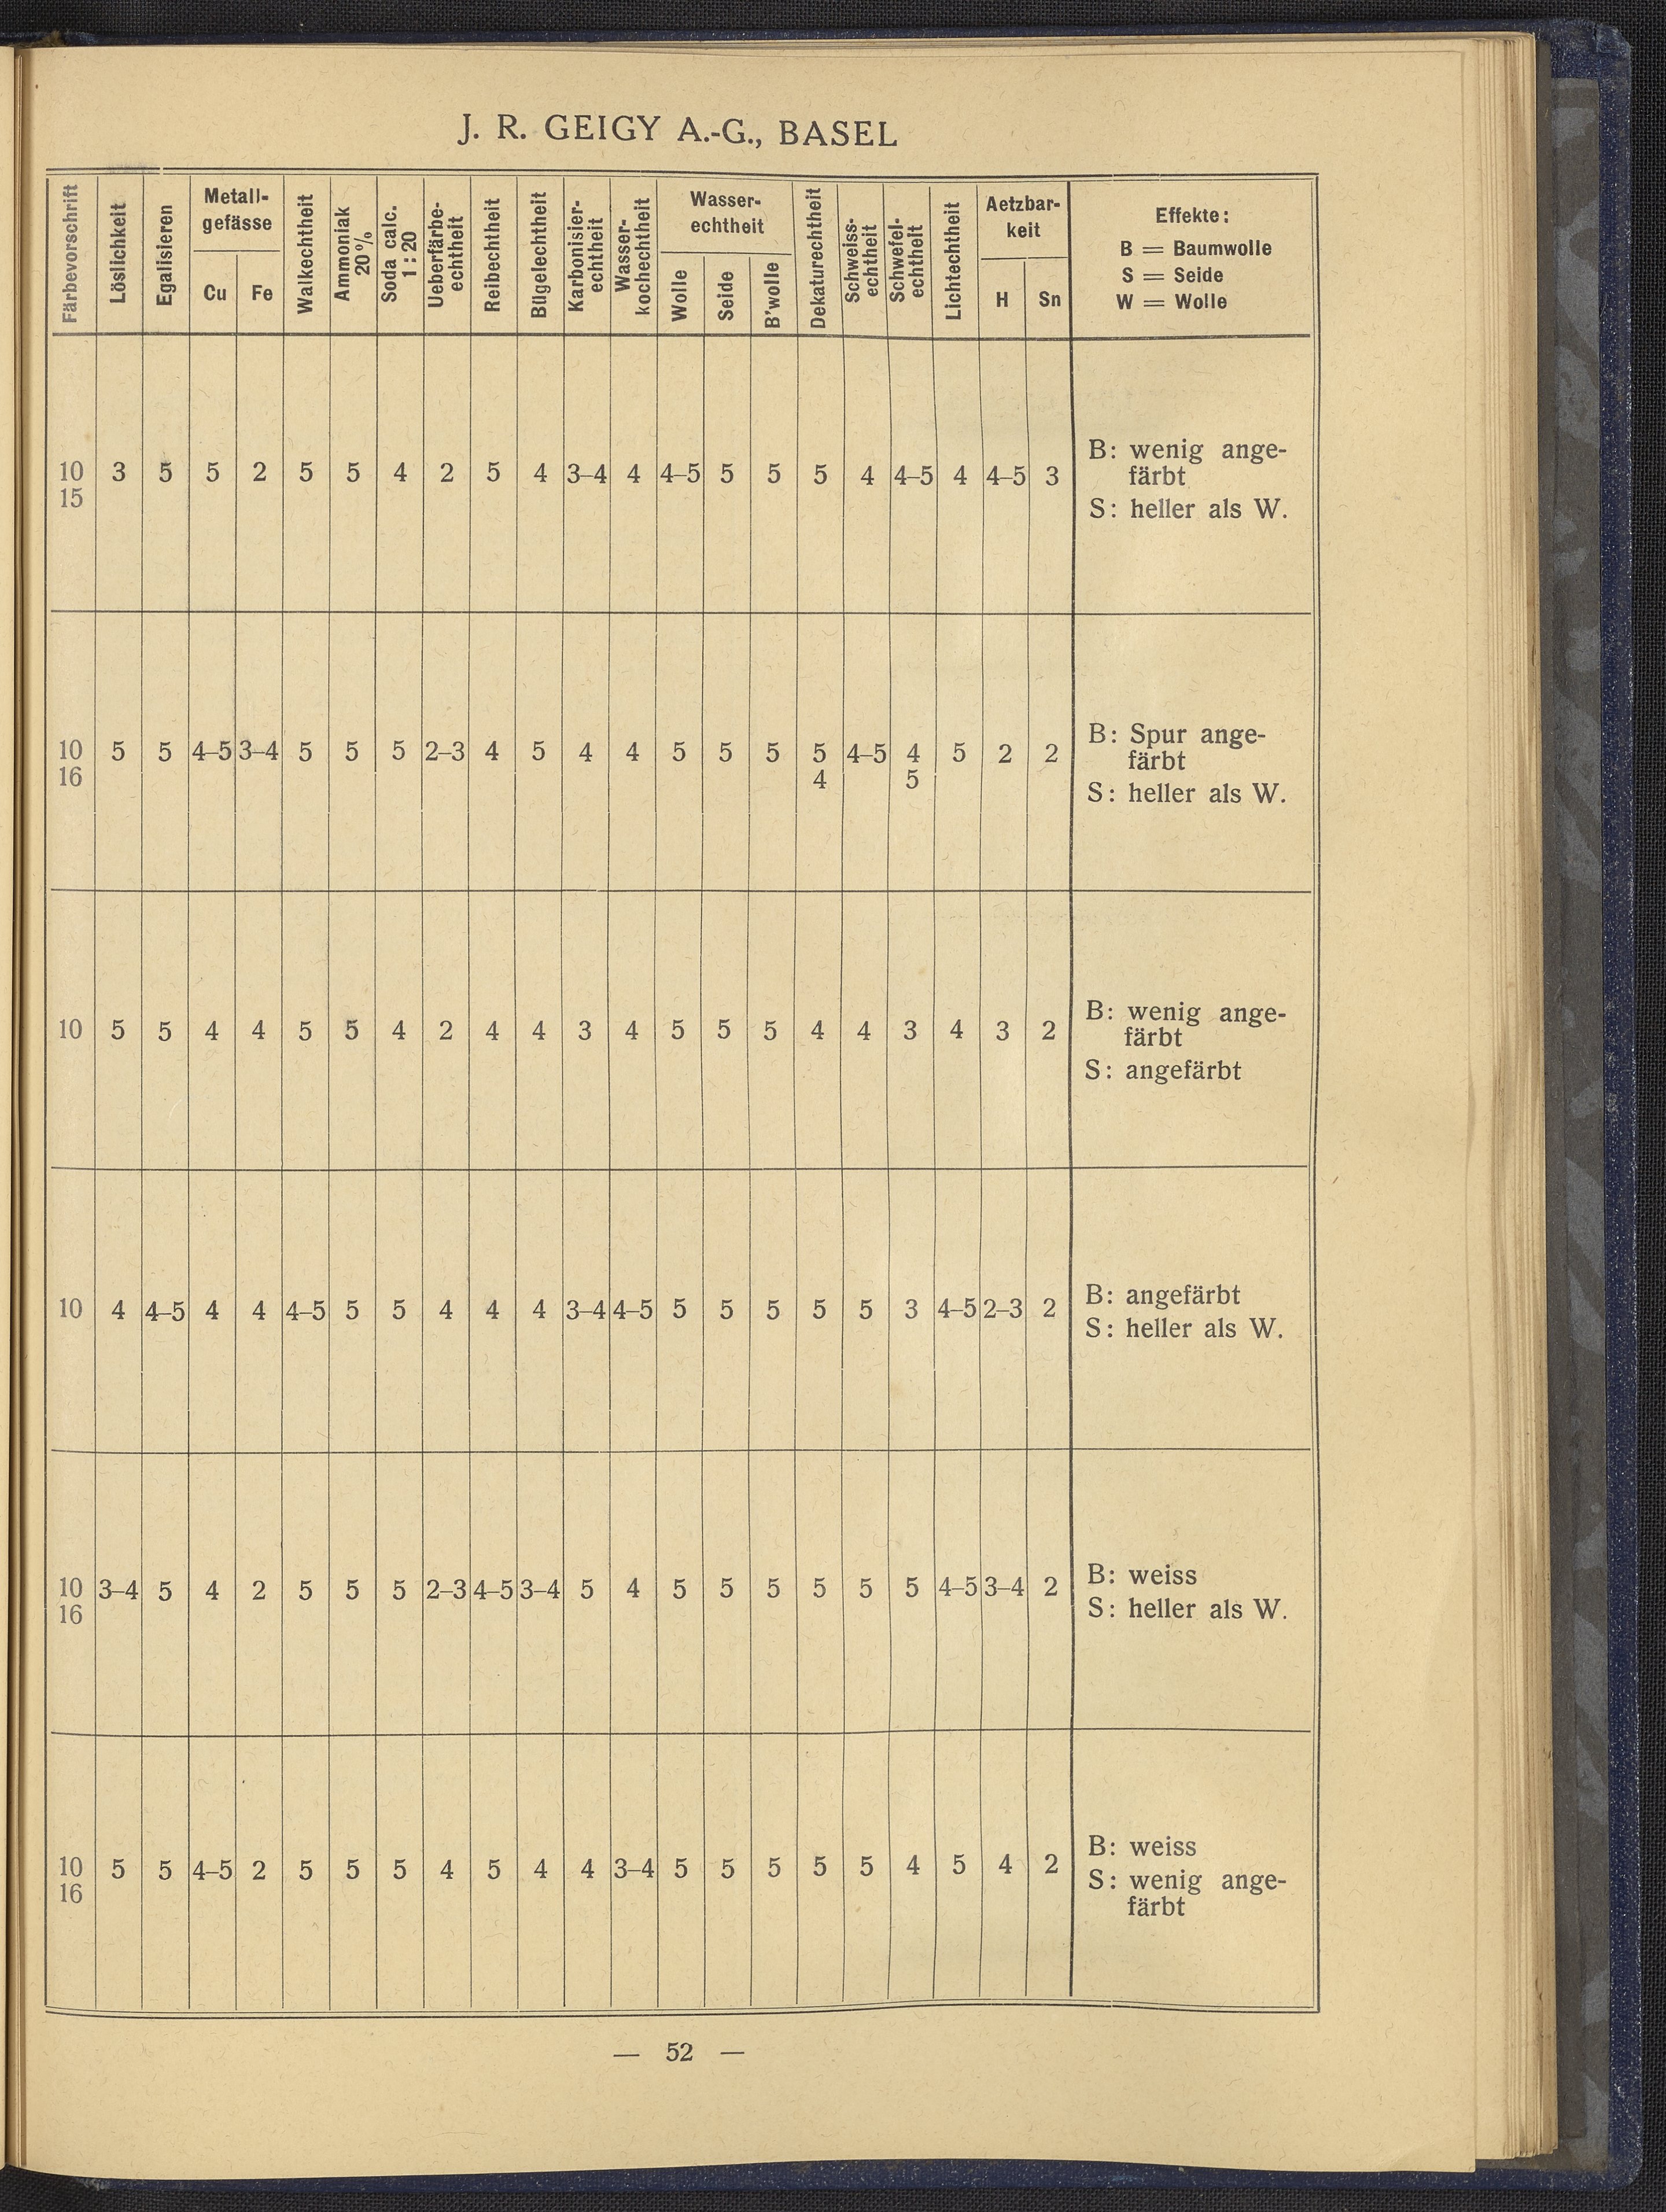 J. R. GEIGY A.-G., BASEL
Färbevorschrift
Löslichkeit
Egalisieren
Metall-
gefässe
Cu Fe
Walkechtheit
Ammoniak
20 %
Soda calc.
1 : 20
Ueberfärbe-
echtheit
Reibechtheit
Bügelechtheit
Karbonisier-
echtheit
Wasser-
kochechtheit
Wasser-
echtheit
Wolle
Seide
B'wolle
Dekaturechtheit
Schweiss-
echtheit
Schwefel-
echtheit
Lichtechtheit
Aetzbar-
keit
H Sn
Effekte:
B = Baumwolle
S = Seide
W = Wolle
10 3 5 5 2 5 5 4 2 5 4 3–4 4 4–5 5 5 5 4 4–5 4 4–5 3
15
B: wenig ange-
färbt
S: heller als W.
10 5 5 4–5 3–4 5 5 5 2–3 4 5 4 4 5 5 5 5 4–5 4 5 2 2
16 4 5
B: Spur ange-
färbt
S: heller als W.
10 5 5 4 4 5 5 4 2 4 4 3 4 5 5 5 4 4 3 4 3 2
B: wenig ange-
färbt
S: angefärbt
10 4 4–5 4 4 4–5 5 5 4 4 4 3–4 4–5 5 5 5 5 5 3 4–5 2–3 2
B: angefärbt
S: heller als W.
10 3–4 5 4 2 5 5 5 2–3 4–5 3–4 5 4 5 5 5 5 5 5 4–5 3–4 2
16
B: weiss
S: heller als W.
10 5 5 4–5 2 5 5 5 4 5 4 4 3–4 5 5 5 5 5 4 5 4 2
16
B: weiss
S: wenig ange-
färbt
— 52 —